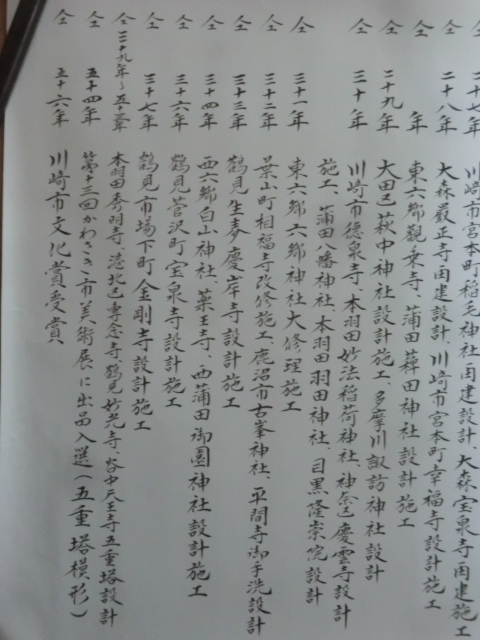 仝 二十七年 川崎市宮本町稲毛神社再建設計、大森宝泉寺再建施工
仝 二十八年 大森嚴正寺再建設計、川崎市宮本町幸福寺設計施工
年 東六郷觀乗寺、蒲田薭田神社設計施工
仝 二十九年 大田区萩中神社設計施工、多摩川諏訪神社設計
仝 三十年 川崎市德泉寺、本羽田妙法稲荷神社、神奈区慶雲寺設計
施工 蒲田八幡神社、本羽田羽田神社、目黒隆崇院設計
仝 三十一年 東六郷六郷神社大修理施工
仝 三十二年 葉山町相福寺改修施工、鹿沼市古峯神社、平間寺御手洗設計
仝 三十三年 鶴見生麦慶岸寺設計施工
仝 三十四年 西六郷白山神社、薬王寺、西蒲田御園神社設計施工
仝 三十六年 鶴見菅沢町宝泉寺設計施工
仝 三十七年 鶴見市場下町金剛寺設計施工
仝 三十九年〜五十三年 本羽田秀羽寺、港北区専念寺、鶴見妙光寺、谷中天王寺五重塔設計
仝 五十四年 第十三回かわさき市美術展に出品入選(五重塔模形)
仝 五十六年 川崎市文化賞受賞